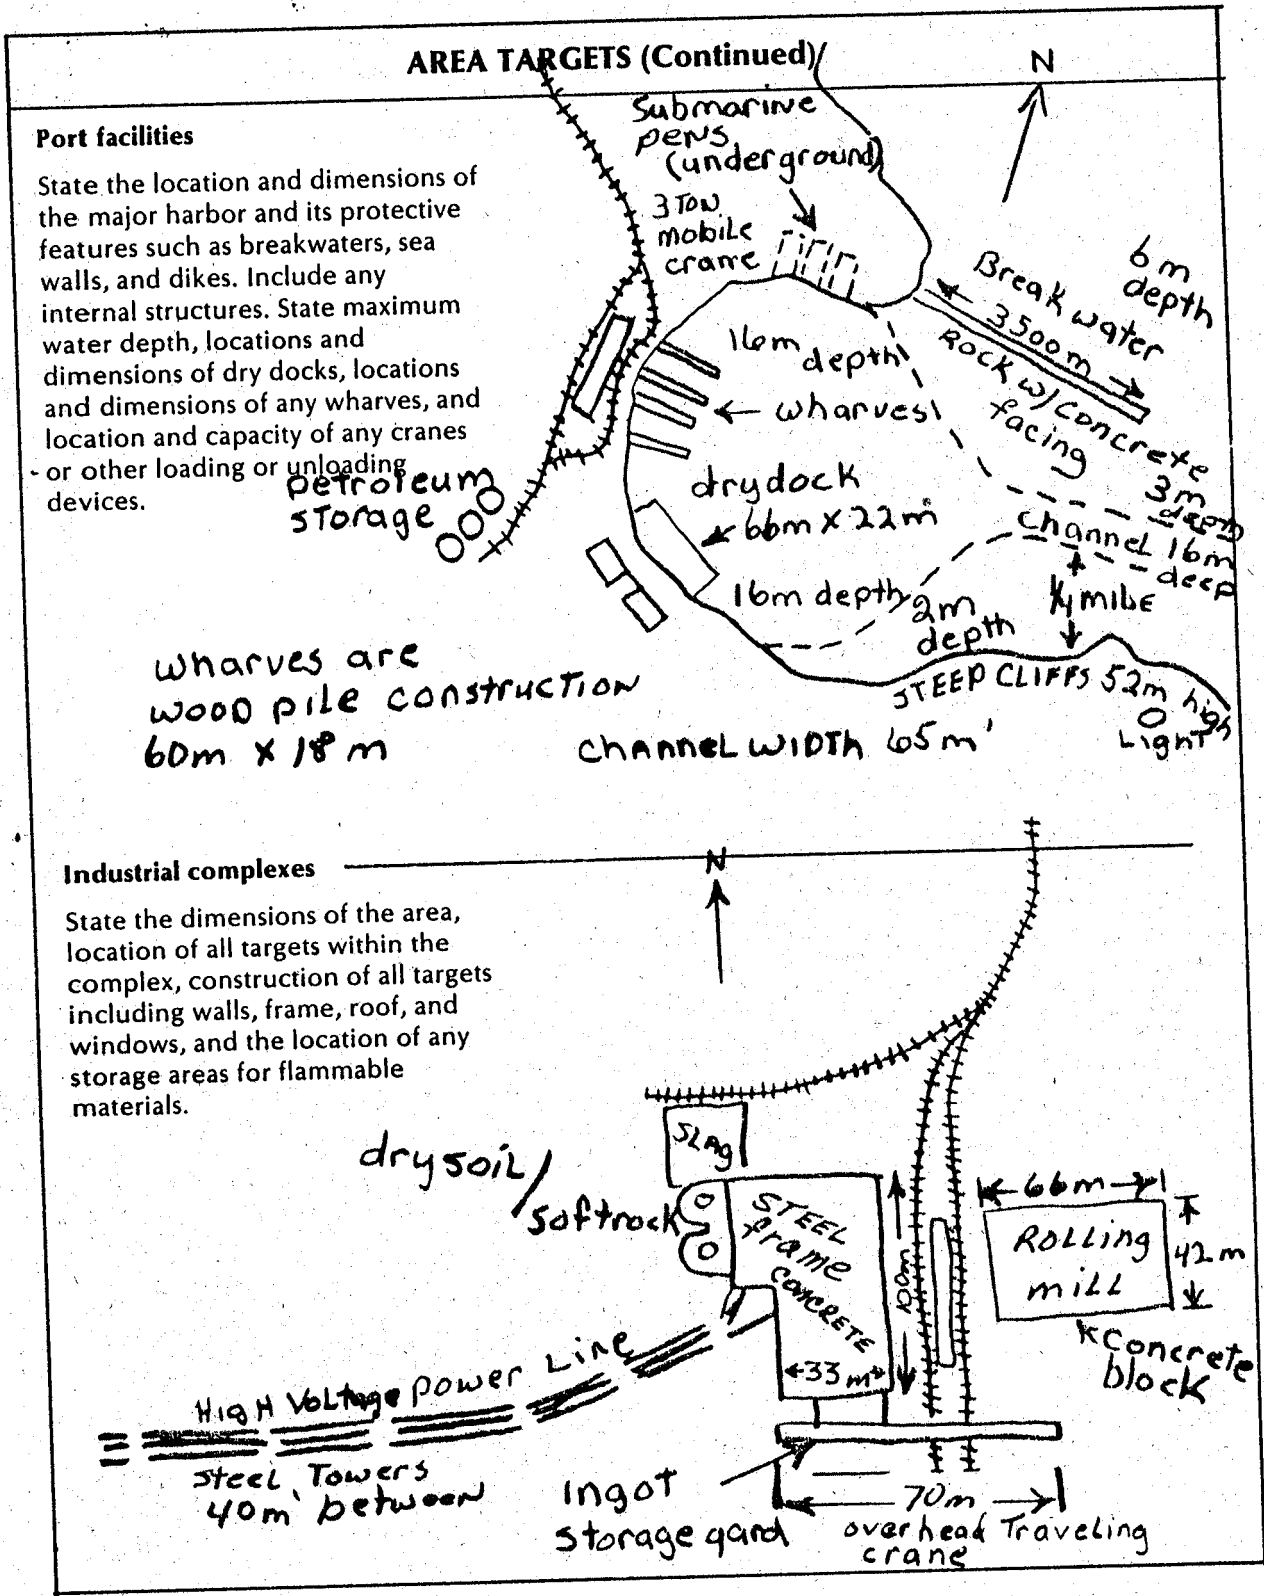 AREA TARGETS (Continued)
N
Port facilities
State the location and dimensions of
the major harbor and its protective
features such as breakwaters, sea
walls, and dikes. Include any
internal structures. State maximum
water depth, locations and
dimensions of dry docks, locations
and dimensions of any wharves, and
location and capacity of any cranes
or other loading or unloading
devices.
Submarine
pens
(underground)
3 TON
mobile
crane
6m
depth
Break water
3500m
Rock w/concrete
facing
16m
depth
wharves
petroleum
storage
drydock
66m x 22m
3m
depth
channel 16m
deep
16m depth
2m
depth
1/4 mile
STEEP CLIFFS 52m high
Light
wharves are
wood pile construction
60m x 18m
CHANNEL WIDTH 65m'
Industrial complexes
N
State the dimensions of the area,
location of all targets within the
complex, construction of all targets
including walls, frame, roof, and
windows, and the location of any
storage areas for flammable
materials.
SLAg
dry soil/
softrock
STEEL
frame
concrete
100m
33m
66m
Rolling
mill
42m
Concrete
block
High Voltage power Line
Steel Towers
40m' between
Ingot
storage yard
70m
overhead Traveling
crane